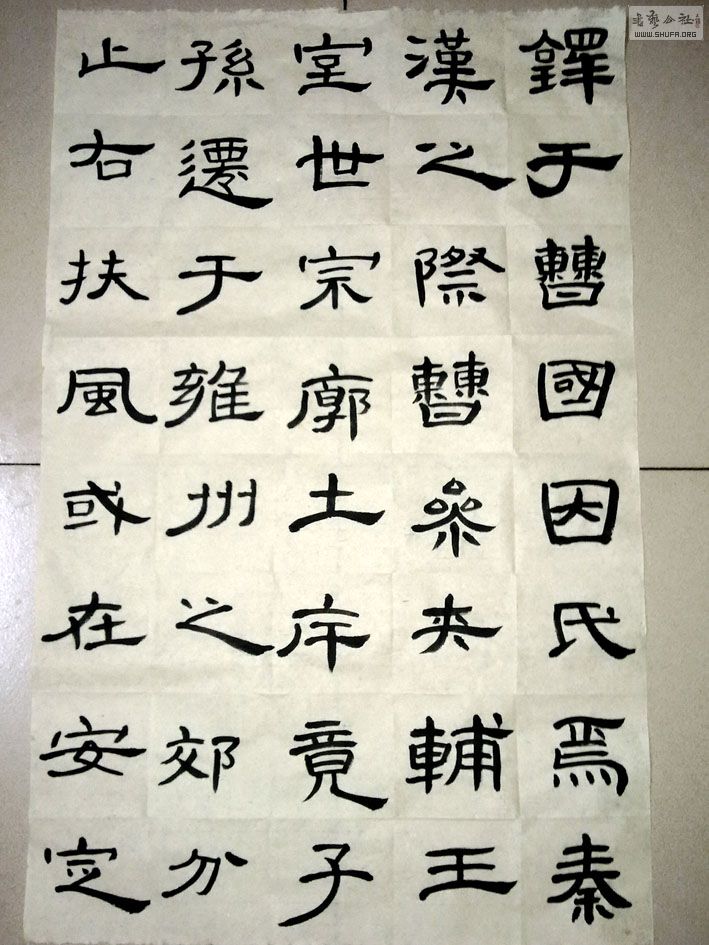 鐸于曹國因氏焉秦
漢之際曹參夾輔王
室世宗廓土斥竟子
孫遷于雍州之郊分
止右扶風或在安定
书艺公社
WWW.SHUFA.ORG